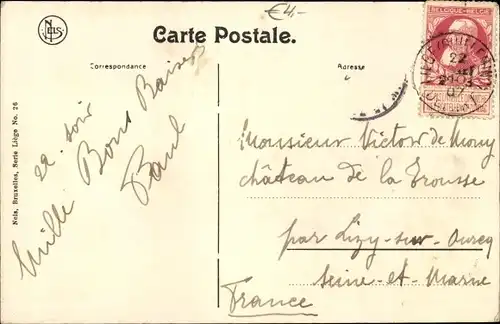 €4,-
NELS
Carte Postale.
Correspondance
Adresse
BELGIQUE-BELGIË
22
07
22 soir
Mille Bons Baisers
Paul
Monsieur Victor de Mony
château de la Trousse
par Lizy-sur-Ourcq
Seine-et-Marne
France
Nels, Bruxelles, Serie Liége No. 26